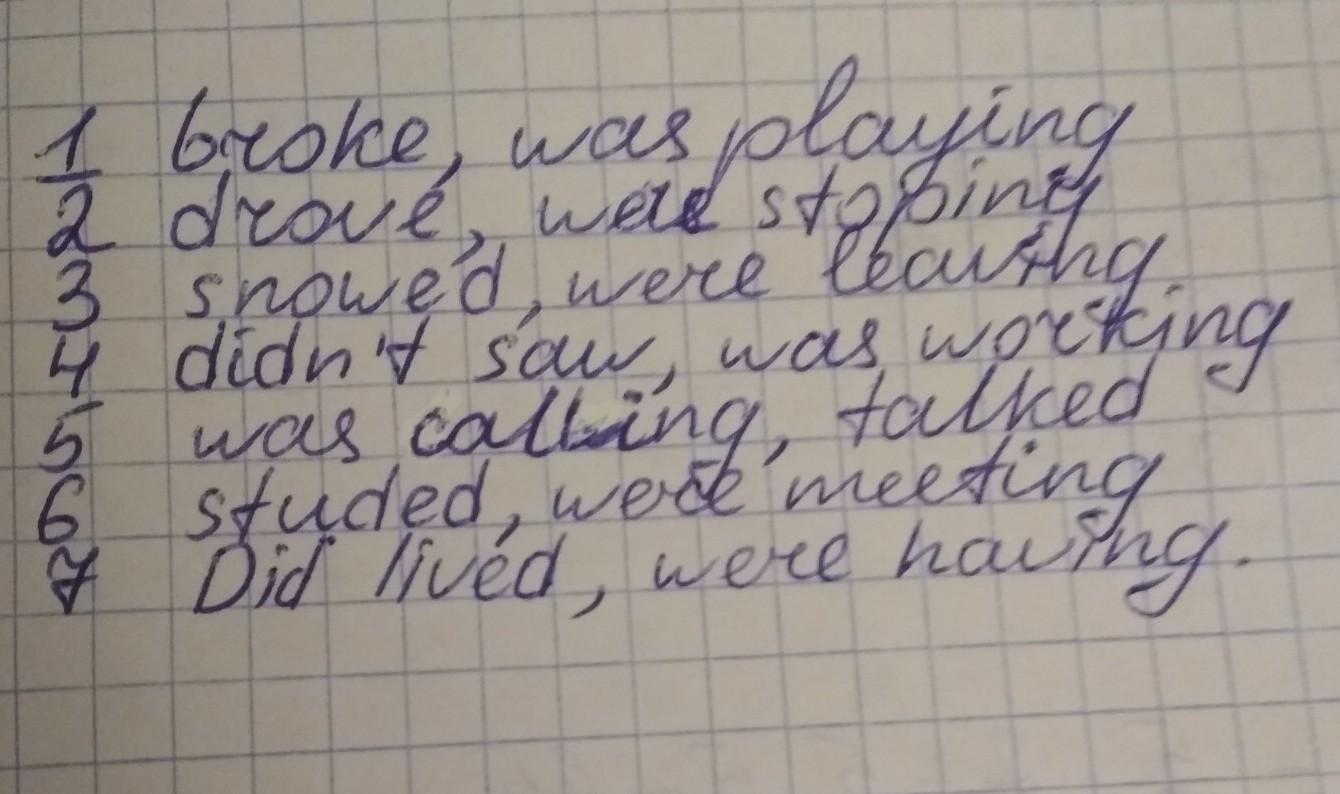 1 broke, was playing
2 drove, were stoping
3 snowed, were leaving
4 didn't saw, was working
5 was calling, talked
6 studed, were meeting
7 Did lived, were having.